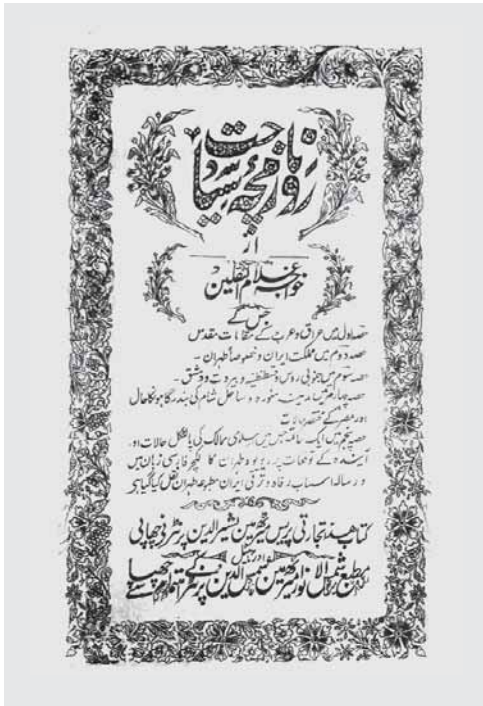 روزنامچۂ سیاحت
از
خواجہ غلام الثقلین
جس کے
حصہ اول میں عراق و عرب کے مقامات مقدس
حصہ دوم میں مملکت ایران و خصوصاً طہران۔
حصہ سوم میں جنوبی روس و قسطنطنیہ و بیروت و دمشق۔
حصہ چہارم میں مدینہ منورہ و ساحل شام کی بندرگاہونکا حال
اور مصر کے مختصر
حصہ پنجم میں ایک اسلامی ممالک کی پالٹیکل حالات اور
آیندہ کے توقعات پر ریویو و طہران کا لکچر فارسی زبان میں
و رسالہ اسباب رفاہ و ترقی ایران مطبوعہ طہران نقل کیا گیا ہی
کتاب ہند تجارتی پریس میرٹھ میں بشیر الدین پرنٹر نے چھاپی
اور ٹائیٹل
مطبع شمس الانوار میرٹھ میں شمس الدین پرنٹر کے اہتمام سے چھپا